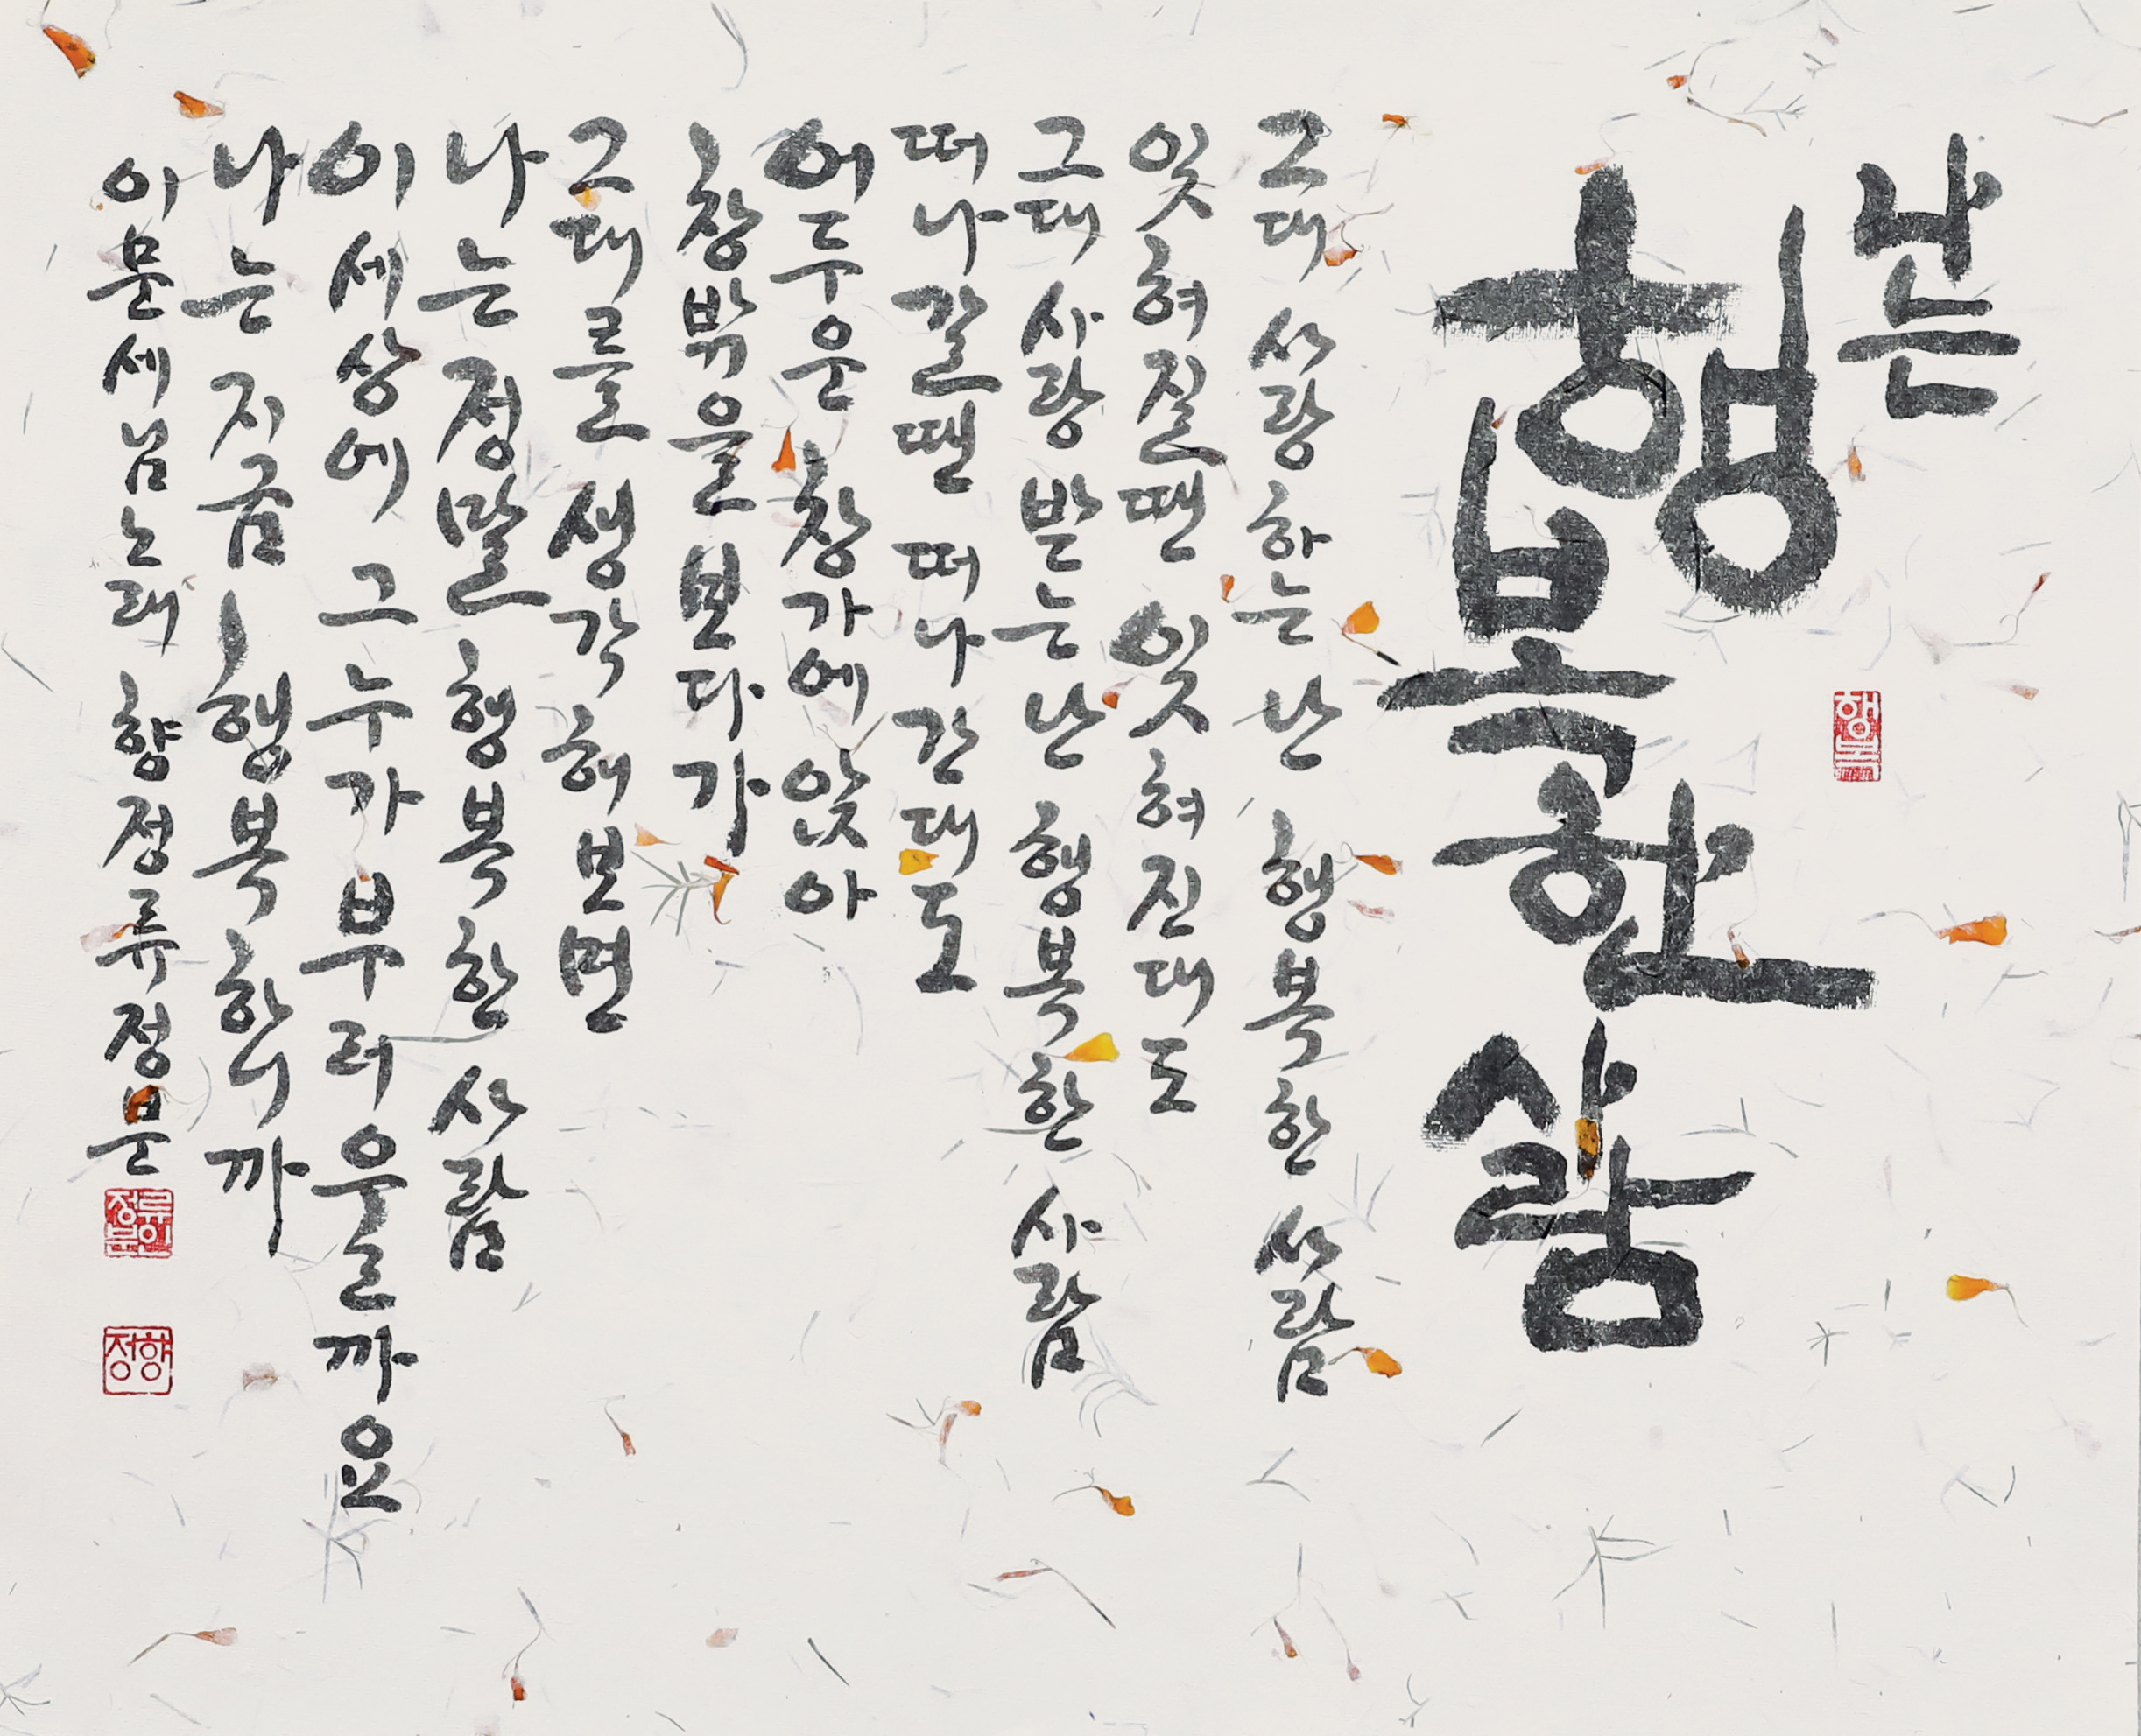 나는
행복한
사람
행복
그대 사랑하는 난 행복한 사람
잊혀질땐 잊혀진대도
그대 사랑받는 난 행복한 사람
떠나갈땐 떠나간대도
어두운 창가에 앉아
창밖을 보다가
그대를 생각해보면
나는 정말 행복한 사람
이세상에 그 누가 부러울까요
나는 지금 행복하니까
이문세님노래 향정류정분
류정분인
향정